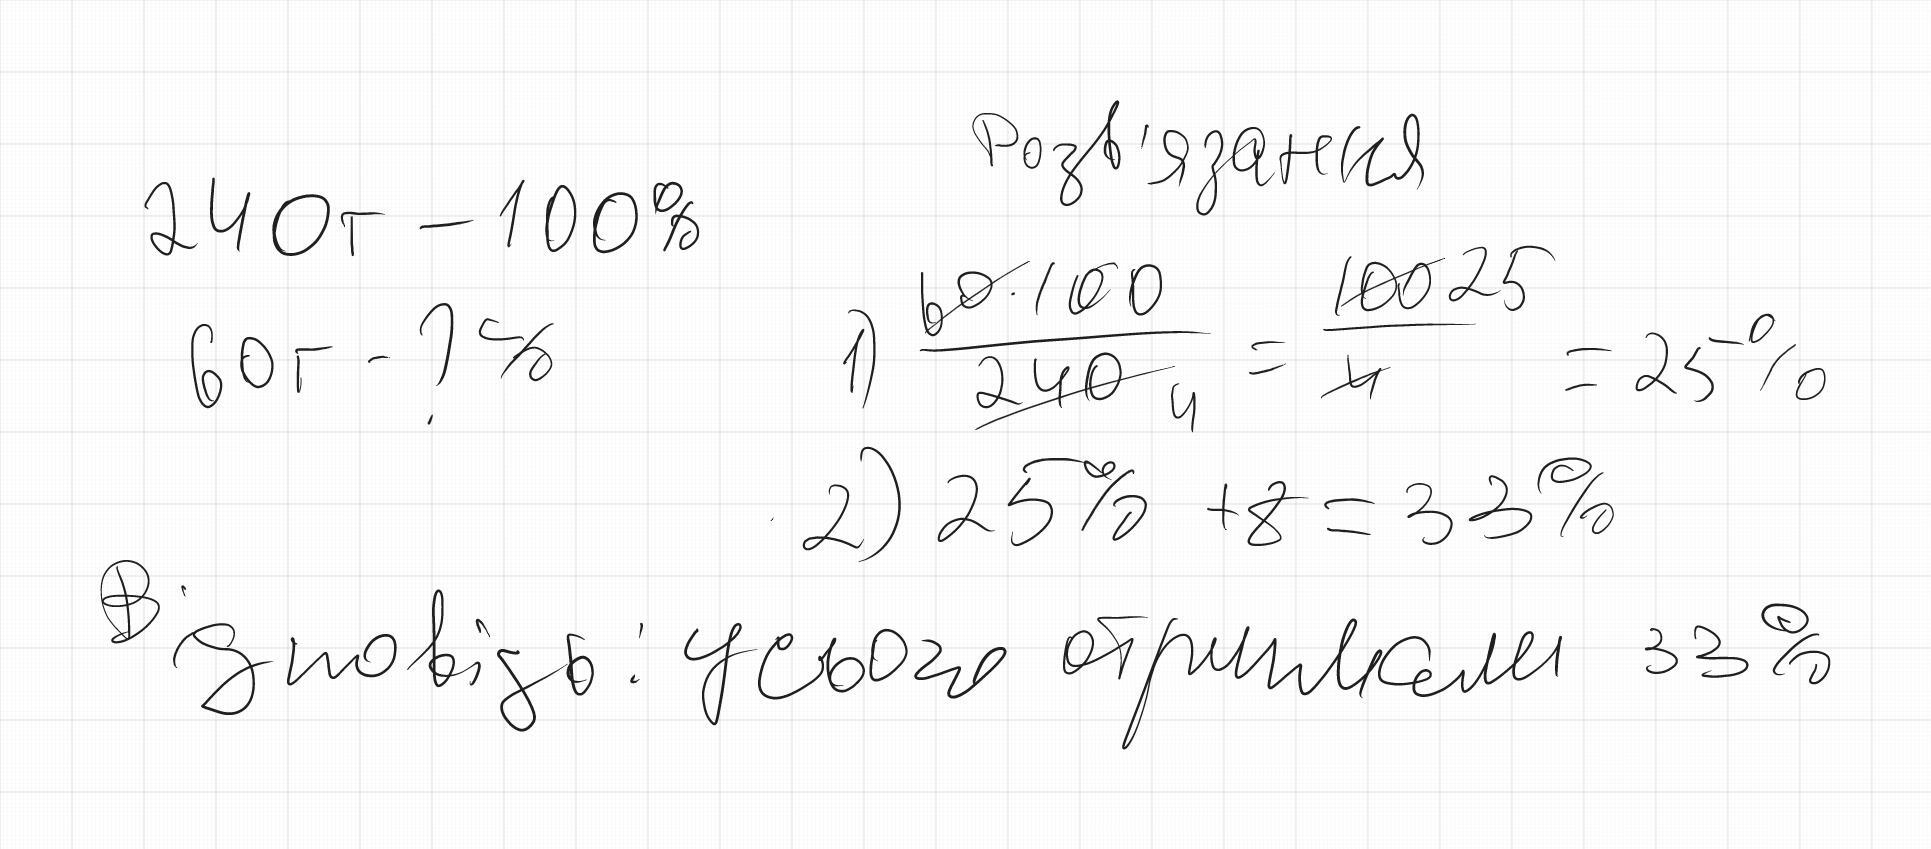 Розв'язання
240г - 100%
60г - ? %
1) 60·100 / 240 4 = 100 25 / 4 = 25%
2) 25% + 8 = 33%
Відповідь: усього отримали 33%